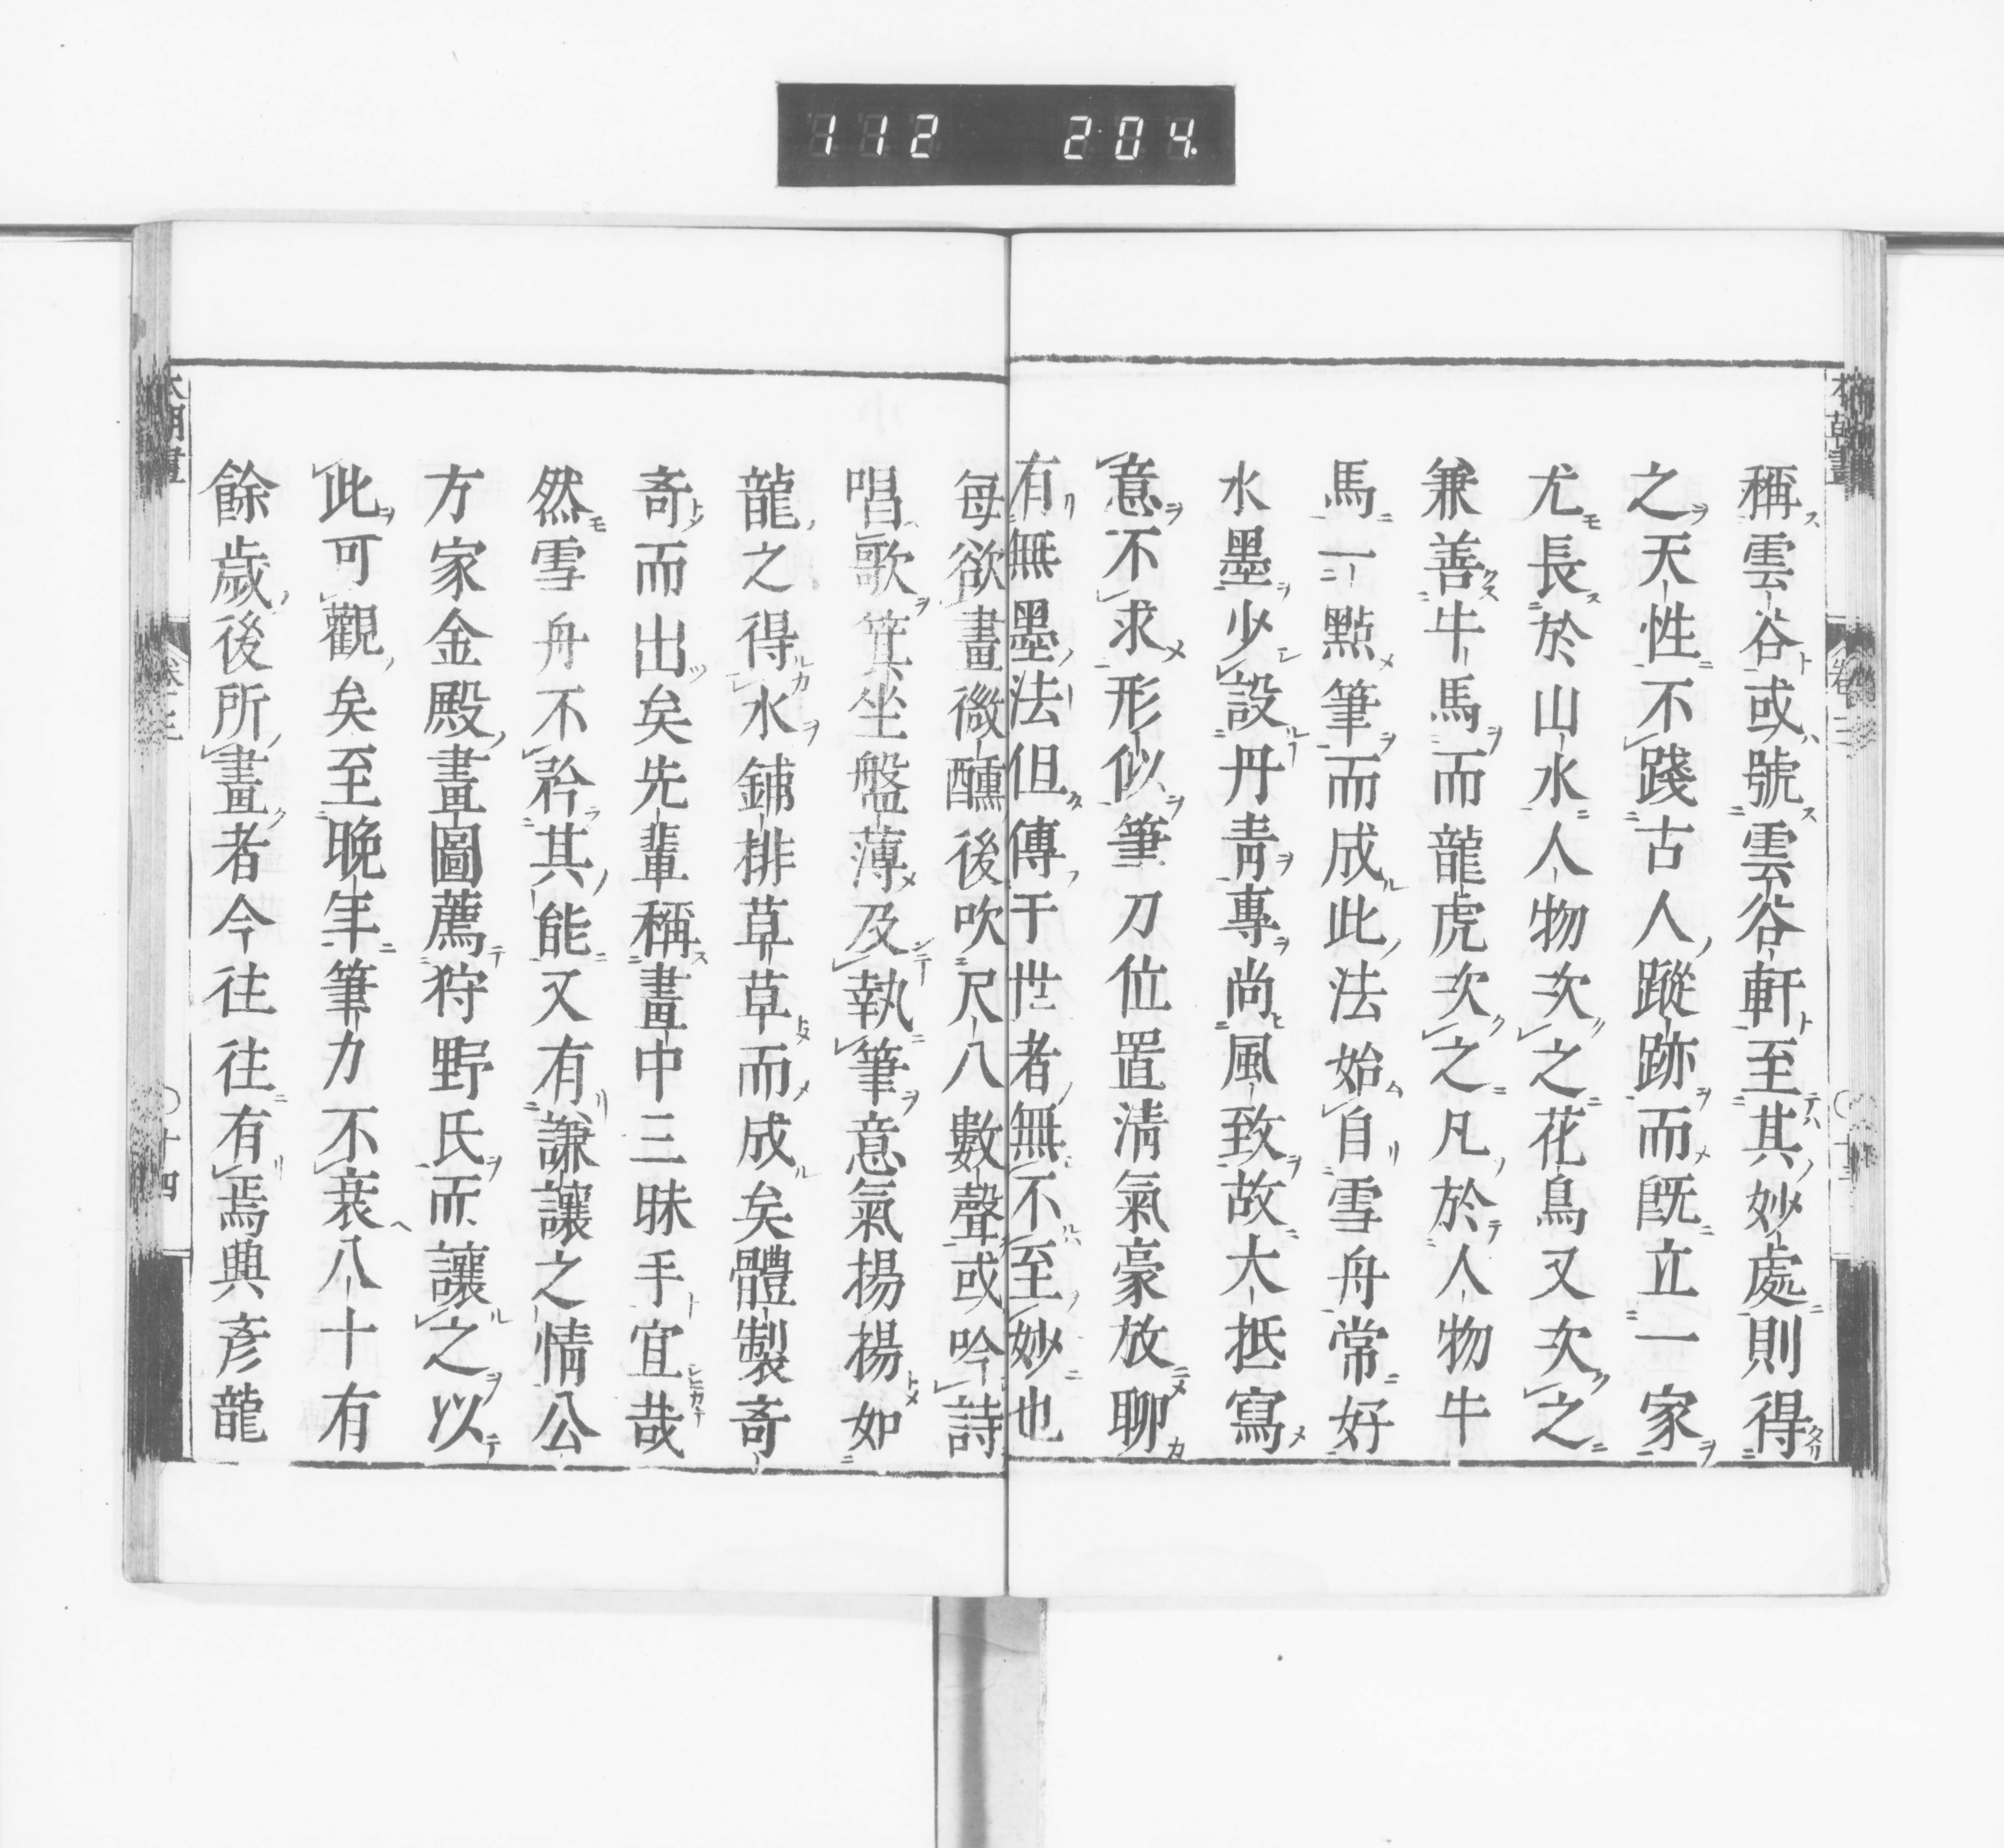 112 204
稱雲谷或號雲谷軒至其妙處則得
之天性不踐古人蹤跡而既立一家
尤長於山水人物次之花鳥又次之
兼善牛馬而龍虎次之凡於人物牛
馬一點筆而成此法始自雪舟常好
水墨少設丹青專尚風致故大抵寫
意不求形似筆刀位置清氣豪放聊
有無墨法但傳于世者無不至妙也
每欲畫微醺後吹尺八數聲或吟詩
唱歌箕坐盤薄及執筆意氣揚揚如
龍之得水鋪排草草而成矣體製奇
奇而出矣先輩稱畫中三昧手宜哉
然雪舟不矜其能又有謙讓之情公
方家金殿畫圖薦狩野氏而讓之以
此可觀矣至晚年筆力不衰八十有
餘歲後所畫者今往往有焉與彥龍
本朝畫
卷三
十四